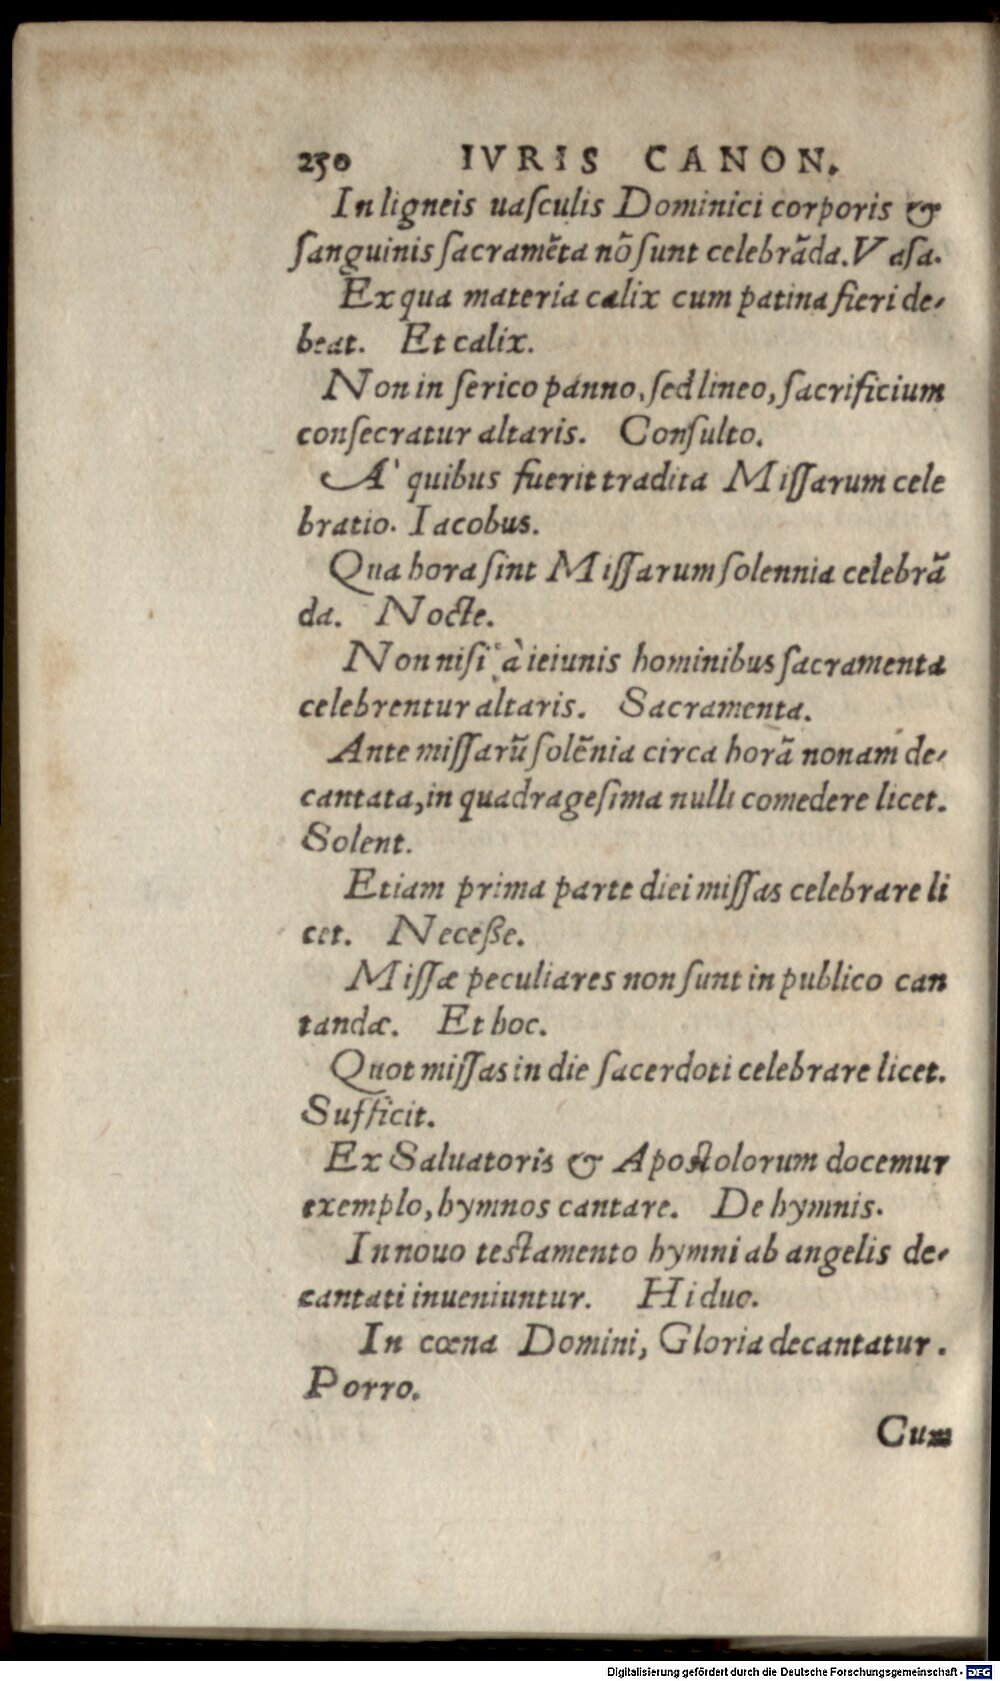 250 IVRIS CANON.
In ligneis uaſculis Dominici corporis &
ſanguinis ſacramẽta nõ ſunt celebrãda. Vaſa.
Ex qua materia calix cum patina fieri de-
beat. Et calix.
Non in ſerico panno, ſed lineo, ſacrificium
conſecratur altaris. Conſulto.
A` quibus fuerit tradita Miſſarum cele
bratio. Iacobus.
Qua hora ſint Miſſarum ſolennia celebrã
da. Nocte.
Non niſi à ieiunis hominibus ſacramenta
celebrentur altaris. Sacramenta.
Ante miſſarũ ſolẽnia circa horã nonam de-
cantata, in quadrageſima nulli comedere licet.
Solent.
Etiam prima parte diei miſſas celebrare li
cet. Neceße.
Miſſæ peculiares non ſunt in publico can
tandæ. Et hoc.
Quot miſſas in die ſacerdoti celebrare licet.
Sufficit.
Ex Saluatoris & Apoſtolorum docemur
exemplo, hymnos cantare. De hymnis.
In nouo teſtamento hymni ab angelis de-
cantati inueniuntur. Hi duo.
In cœna Domini, Gloria decantatur.
Porro.
Cum
Digitalisierung gefördert durch die Deutsche Forschungsgemeinschaft - DFG